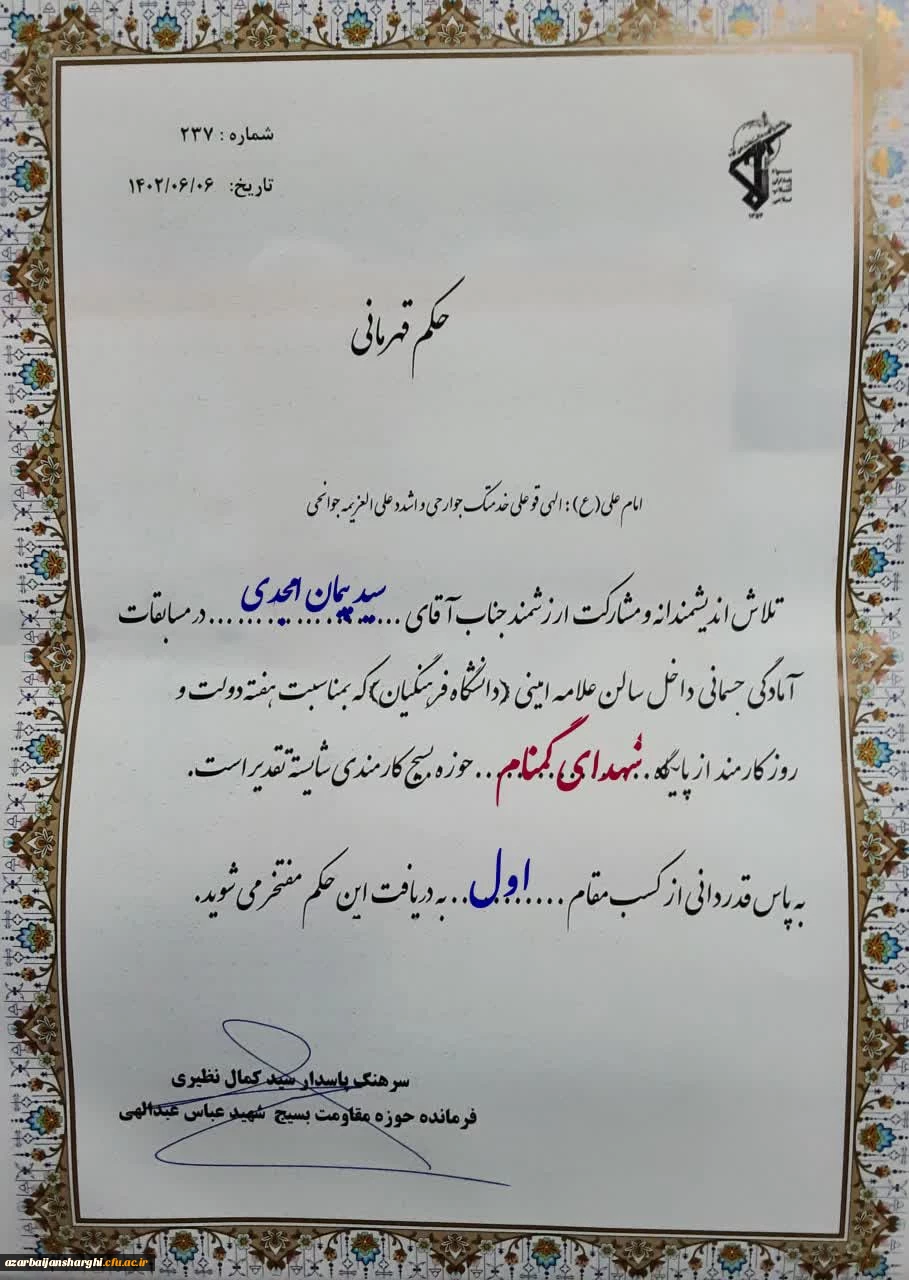 شماره : ۲۳۷
تاریخ: ۱۴۰۲/۰۶/۰۶
حکم قهرمانی
امام علی (ع) : الهی قو علی خدمتک جوارحی و اشدد علی العزیمه جوانحی
تلاش اندیشمندانه و مشارکت ارزشمند جناب آقای ... سید پیمان امجدی ... در مسابقات
آمادگی جسمانی داخل سالن علامه امینی (دانشگاه فرهنگیان) که بمناسبت هفته دولت و
روز کارمند از پایگاه .. شهدای گمنام ... حوزه بسیج کارمندی شایسته تقدیر است.
به پاس قدردانی از کسب مقام ........ اول .. به دریافت این حکم مفتخر می شوید.
سرهنگ پاسدار سید کمال نظیری
فرمانده حوزه مقاومت بسیج شهید عباس عبدالهی
azarbaijansharghi.cfu.ac.ir